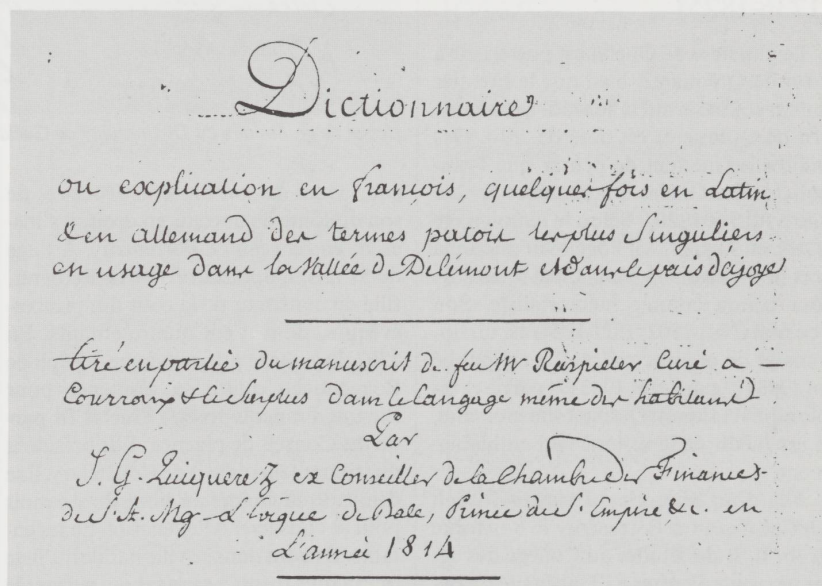 Dictionnaire
ou explication en françois, quelques fois en Latin
& en allemand des termes patois les plus singuliers
en usage dans la Vallée de Delémont et dans le païs d'ajoye
tiré en partie du manuscrit de feu Mr Raspieler Curé a —
Courroux & le surplus dans le langage même des habitans
Par
J. G. Quiquerez ex Conseiller de la Chambre des Finances
de S. A. Mgr L'Evêque de Bale, Prince du St. Empire &c. en
L'année 1814